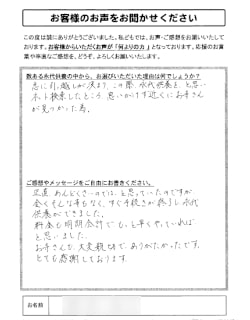 お客様のお声をお聞かせください
この度は誠にありがとうございました。私どもでは、お声・ご感想をお願いいたして
おります。お客様からいただくお声が「何よりの力」となっております。応援のお言
葉や率直なご感想を、どうぞ、よろしくお願いいたします。
数ある永代供養の中から、お選びいただいた理由は何でしょうか?
急に引越しが決まり、この際、永代供養を、と思い
ネット検索したところ、思いがけず近くにお寺さん
が見つかった為。
ご感想やメッセージをご自由にお書きください。
正直 めんどくさいのでは、と思っていたのですが
全くそんな事もなく、すぐ手続きが終了し永代
供養ができました。
料金も明朗会計で、もっと早くやっていれば
と思いました。
お寺さんも、大変親切で、ありがたかったです。
とても感謝しております。
お名前